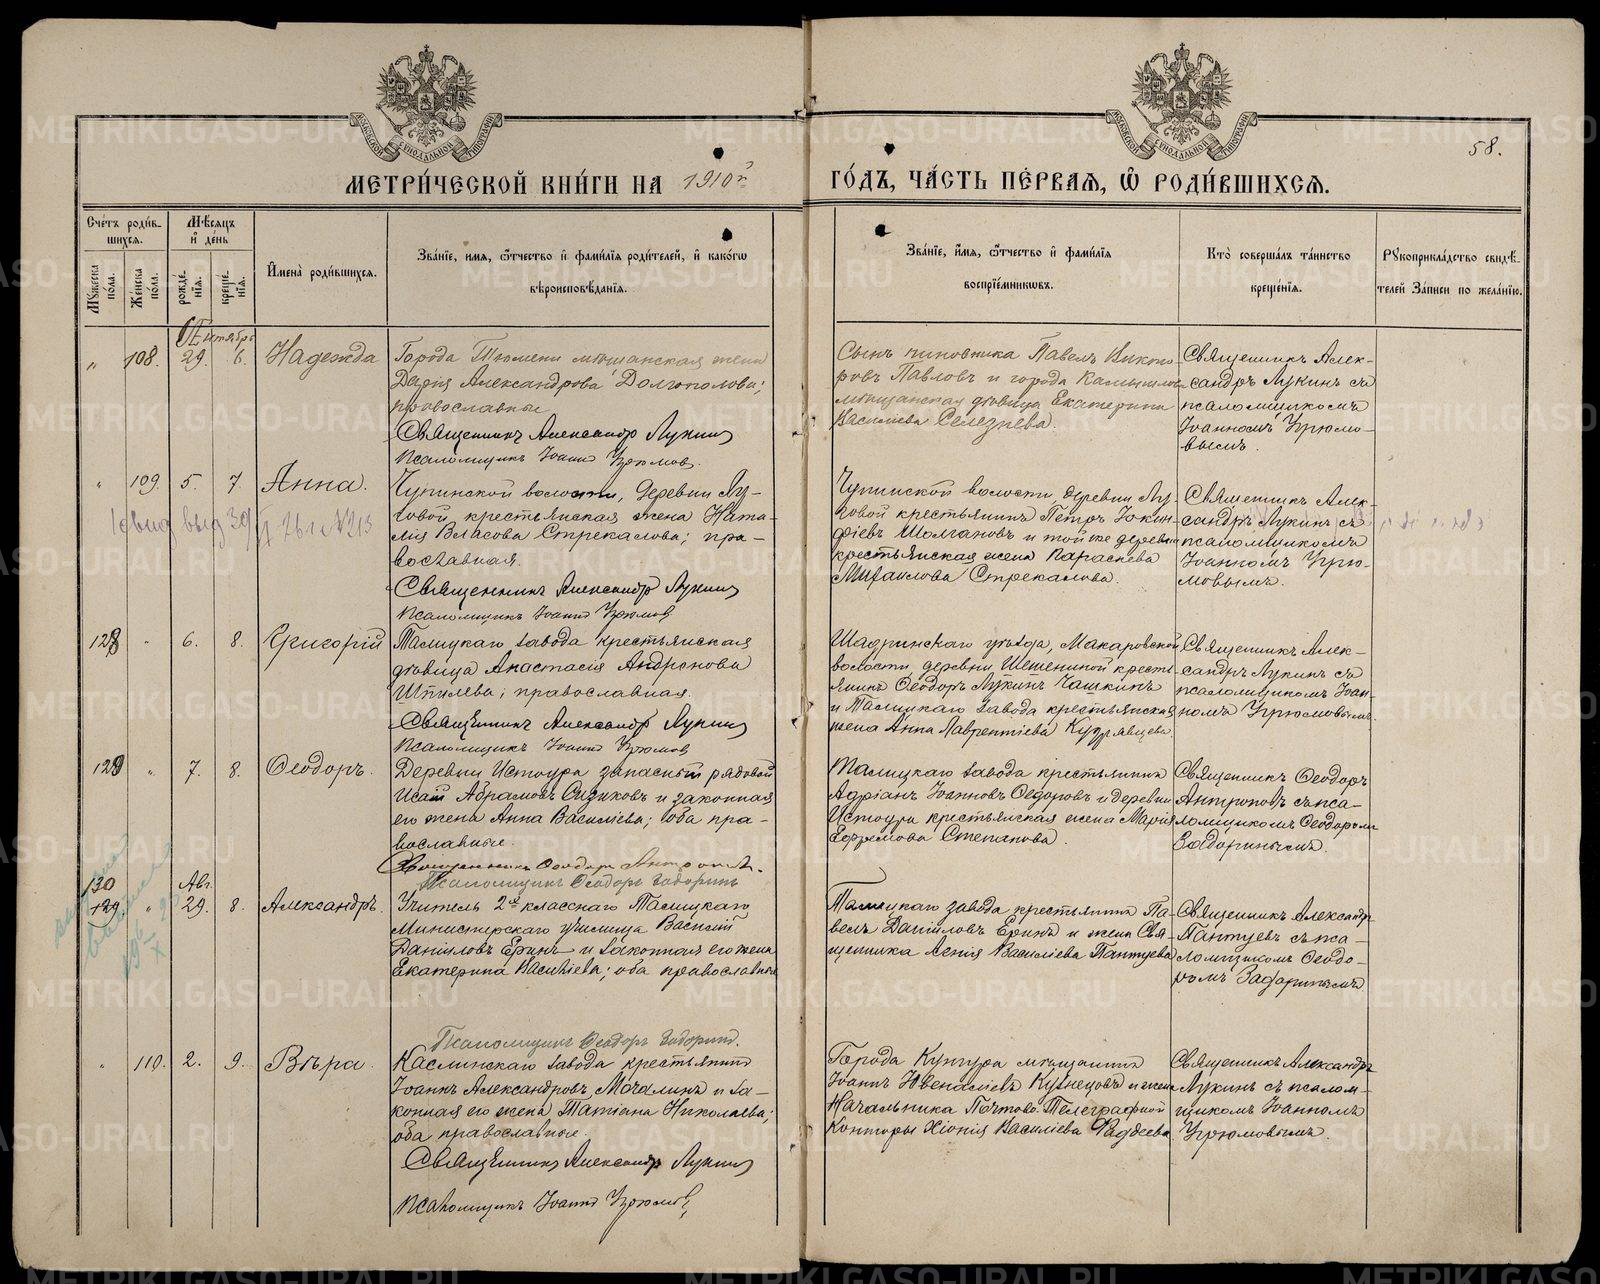 МОСКОВСКОЙ СѴНОДАЛЬНОЙ ТИПОГРАФІИ
МОСКОВСКОЙ СѴНОДАЛЬНОЙ ТИПОГРАФІИ
58.
МЕТРИ́ЧЕСКОЙ КНИ́ГИ НА 1910й
ГО́ДЪ, ЧА́СТЬ ПЕ́РВАѦ, Ѡ҆ РОДИ́ВШИХСѦ.
Сче́тъ роди́в-
шихсѧ.
Мѣ́сѧцъ
и҆ де́нь
Мꙋ́жеска по́ла.
Же́нска по́ла.
рожде́нїѧ.
креще́нїѧ.
И҆мена̀ роди́вшихсѧ.
Зва́нїе, и҆́мѧ, ѻ҆́тчество и҆ фами́лїѧ роди́телей, и҆ како́гѡ
вѣроисповѣ́данїѧ.
Зва́нїе, и҆́мѧ, ѻ҆́тчество и҆ фами́лїѧ
воспрїе́мникѡвъ.
Кто̀ соверша́лъ та́инство
креще́нїѧ.
Рꙋкоприкла́дство свидѣ́-
телей за́писи по жела́нїю.
Сентябрь
„ 108. 29. 6. Надежда
Города Тюмени мѣщанская жена
Дарія Александрова Долгополова;
православные
Священникъ Александр Лукин
Псаломщикъ Іоанн Угрюмов.
Сынъ чиновника Павелъ Никано-
ровъ Павловъ и города Камышлова
мѣщанская дѣвица Екатерина
Васильева Селезнева.
Священникъ Алек-
сандръ Лукинъ съ
псаломщикомъ
Іоанномъ Угрюмо-
вымъ.
„ 109. 5. 7. Анна.
Чупинской волости, деревни Лу-
говой крестьянская жена Ната-
лія Власова Стрекалова; пра-
вославная.
Священникъ Александр Лукин
Псаломщикъ Іоанн Угрюмов
Чупинской волости, деревни Лу-
говой крестьянинъ Петръ Іоакин-
фіевъ Шолгановъ и той же деревни
крестьянская жена Параскева
Михаилова Стрекалова.
Священникъ Алек-
сандръ Лукинъ съ
псаломщикомъ
Іоанномъ Угрю-
мовымъ.
128 „ 6. 8. Григорій
Талицкаго завода крестьянская
дѣвица Анастасія Андреова
Шпилева; православная.
Священникъ Александр Лукин
Псаломщикъ Іоанн Угрюмов
Шадринскаго уѣзда, Макаровской
волости деревни Шешениной кресть-
янинъ Ѳеодоръ Лукинъ Чашкинъ
и Талицкаго завода крестьянская
жена Анна Лаврентіева Кудрявцева.
Священникъ Алек-
сандръ Лукинъ съ
псаломщикомъ Іоан-
номъ Угрюмовымъ.
129 „ 7. 8. Ѳеодоръ.
Деревни Истоура запасный рядовой
Исай Абрамовъ Сизиковъ и законная
его жена Анна Васильева; оба пра-
вославные.
Священникъ Ѳеодоръ Антропов.
Псаломщикъ Ѳеодоръ Задоринъ
Талицкаго завода крестьянинъ
Адріанъ Іоанновъ Ѳедоровъ и деревни
Истоура крестьянская жена Марія
Ефремова Степанова.
Священникъ Ѳеодоръ
Антроповъ съ пса-
ломщикомъ Ѳеодоромъ
Задоринымъ.
130 Авг.
129 „ 29. 8. Александръ.
Учитель 2х класснаго Талицкаго
Министерскаго училища Василій
Даніиловъ Еринъ и законная его жена
Екатерина Васильева; оба православные
Талицкаго завода крестьянинъ Па-
велъ Даніиловъ Еринъ и жена Свя-
щенника Ксенія Васильева Пантуева
Священникъ Александр
Пантуевъ съ пса-
ломщикомъ Ѳеодо-
ромъ Задоринымъ
Псаломщикъ Ѳеодоръ Задоринъ.
„ 110. 2. 9. Вѣра.
Каслинскаго завода крестьянинъ
Іоаннъ Александровъ Мочалинъ и за-
конная его жена Татіана Николаева;
оба православные.
Священникъ Александр Лукин
Псаломщикъ Іоанн Угрюмов
Города Кунгура мѣщанинъ
Іоаннъ Ювеналіевъ Кузнецовъ и жена
Начальника Почтово-Телеграфной
Конторы Хіонія Васильева Фадеева
Священникъ Александръ
Лукинъ съ псалом-
щикомъ Іоанномъ
Угрюмовымъ.
METRIKI.GASO-URAL.RU